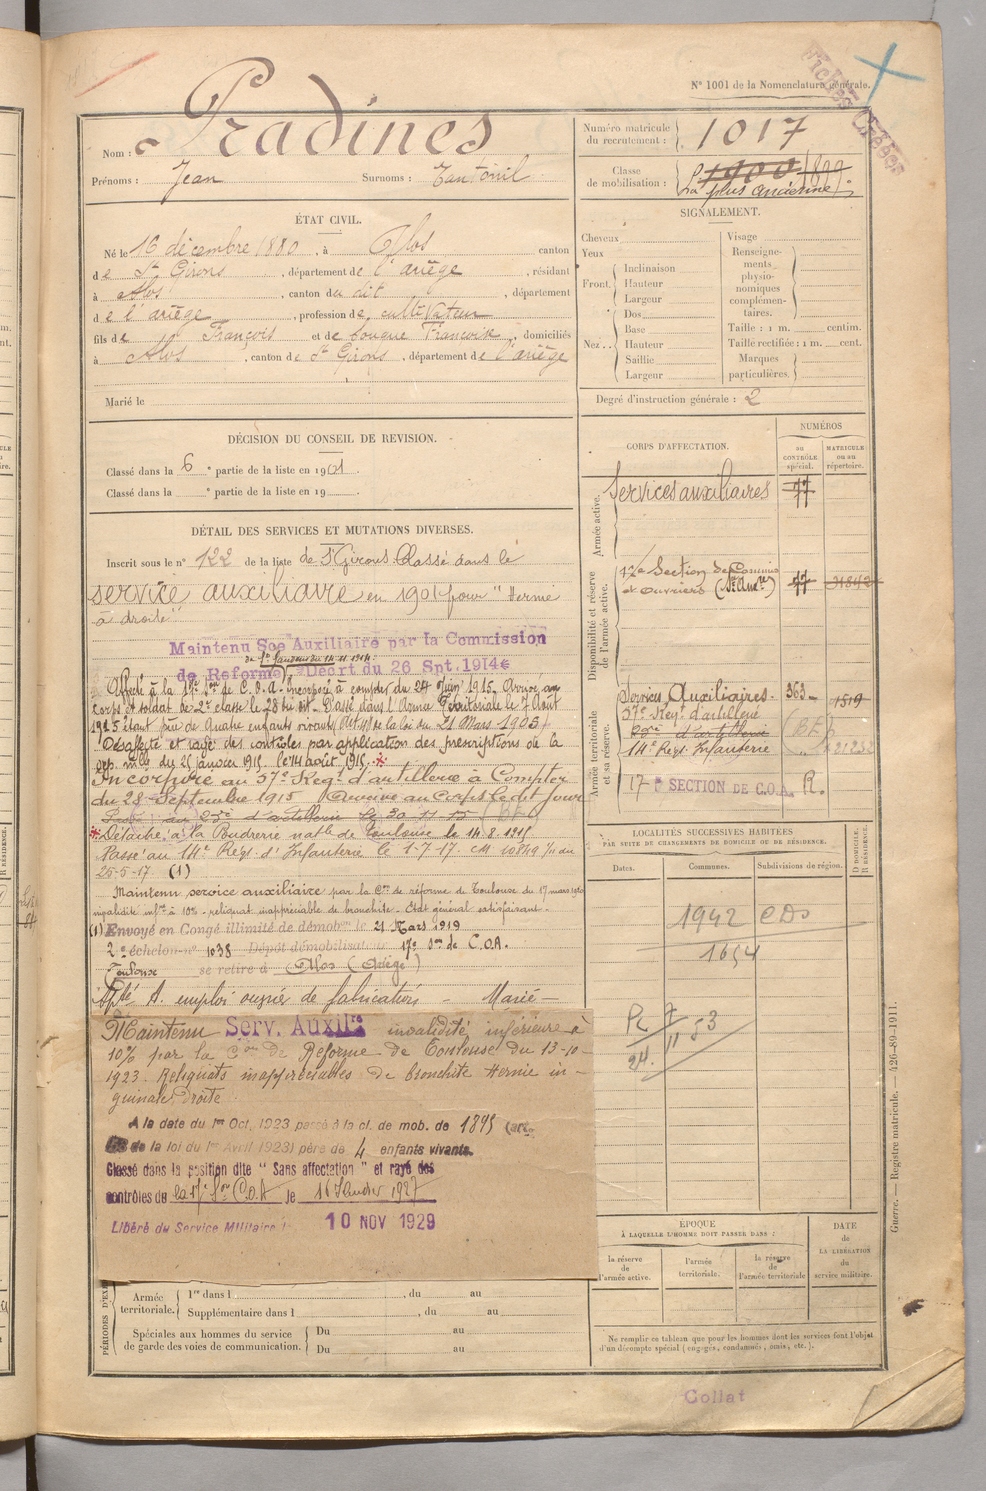 Fiches Créées
N° 1001 de la Nomenclature générale.
Nom : Pradines
Prénoms : Jean Surnoms : Tantonil
Numéro matricule du recrutement : 1017
Classe de mobilisation : 1900 1899
La plus ancienne
ÉTAT CIVIL.
Né le 16 décembre 1880, à Alos canton
de St Girons, département de l'ariège, résidant
à Alos, canton du dit, département
de l'ariège, profession de cultivateur
fils de François et de fouque Françoise, domiciliés
à Alos, canton de St Girons, département de l'ariège
Marié le
SIGNALEMENT.
Cheveux
Yeux
Front. Inclinaison
Hauteur
Largeur
Nez. Dos
Base
Hauteur
Saillie
Largeur
Visage
Renseignements physionomiques complémentaires.
Taille : 1 m. centim.
Taille rectifiée : 1 m. cent.
Marques particulières.
Degré d'instruction générale : 2
DÉCISION DU CONSEIL DE REVISION.
Classé dans la 6e partie de la liste en 1901
Classé dans la e partie de la liste en 19
DÉTAIL DES SERVICES ET MUTATIONS DIVERSES.
Inscrit sous le n° 122 de la liste de St Girons Classé dans le
service auxiliaire en 1901 pour "Hernie
à droite"
Maintenu Sce Auxiliaire par la Commission
de St Girons du 14.11.1914.
de Reforme) Décrt du 26 Spt. 1914
Affecté à la 17e Son de C.O.A. Incorporé à compter du 24 Juin 1915. Arrivé au
corps et soldat de 2e classe le 28 du dit. Passé dans l'Armée Territoriale le 7 Août
1915 étant père de quatre enfants vivants (Art 48 de la loi du 21 Mars 1905)
Désaffecté et rayé des contrôles par application des prescriptions de la
dép. mlle du 25 janvier 1915. le 14 août 1915. *
Incorporé au 57e Regt d'artillerie à Compter
du 28 Septembre 1915 Arrivé au corps le dit jour
Passé au 23e d'artillerie le 30-11-15 (BF)
* Détaché à la Poudrerie natle de Toulouse le 14.8.1915
Passé au 14e Regt d'Infanterie le 1-7-17. CM 10849 1/11 du
25-5-17. (1)
Maintenu service auxiliaire par la Con de réforme de Toulouse du 17 mars 1920
invalidité infre à 10% - reliquat inappréciable de bronchite. Etat général satisfaisant.
(1) Envoyé en Congé illimité de démobon le 21 Mars 1919
2e échelon n° 1038 Dépôt démobilisat 17e Son de C.O.A.
Toulouse se retire à Alos (Ariège)
Apte A. emploi ouvrier de fabrication - Marié -
Maintenu Serv. Auxilre invalidité inférieure à
10% par la Con de Reforme de Toulouse du 13-10-
1923. Reliquats inappréciables de bronchite Hernie in-
guinale droite
A la date du 1er Oct. 1923 passé à la cl. de mob. de 1895 (art.
de la loi du 1er Avril 1923) père de 4 enfants vivants.
Classé dans la position dite "Sans affectation" et rayé des
contrôles de la 17e Son C.O.A le 16 Février 1927
Libéré du Service Militaire le 10 NOV 1929
CORPS D'AFFECTATION.
NUMÉROS
DU CONTRÔLE spécial.
MATRICULE ou au répertoire.
Armée active.
Services auxiliaires 77
Disponibilité et réserve de l'armée active.
17e Section de Commis et Ouvriers (St Auxre) 77 31842
Armée territoriale et sa réserve.
Services Auxiliaires. 363 1519
57e Regt d'artillerie
23e d'artillerie (BF)
14e Regt Infanterie 21232
17e SECTION DE C.O.A. R.
LOCALITÉS SUCCESSIVES HABITÉES
PAR SUITE DE CHANGEMENTS DE DOMICILE OU DE RÉSIDENCE.
Dates. Communes. Subdivisions de région. D DOMICILE. R RÉSIDENCE.
1942 CDO
1654
PL 7
11 53
24.
ÉPOQUE
À LAQUELLE L'HOMME DOIT PASSER DANS :
la réserve de l'armée active.
l'armée territoriale.
la réserve de l'armée territoriale
DATE de LA LIBÉRATION du service militaire.
PÉRIODES D'EXE
Armée territoriale. 1re dans l , du au
Supplémentaire dans l , du au
Spéciales aux hommes du service de garde des voies de communication.
Du au
Du au
Ne remplir ce tableau que pour les hommes dont les services font l'objet
d'un décompte spécial (engagés, condamnés, omis, etc.).
Guerre. — Registre matricule. — 426-89-1911.
Collat